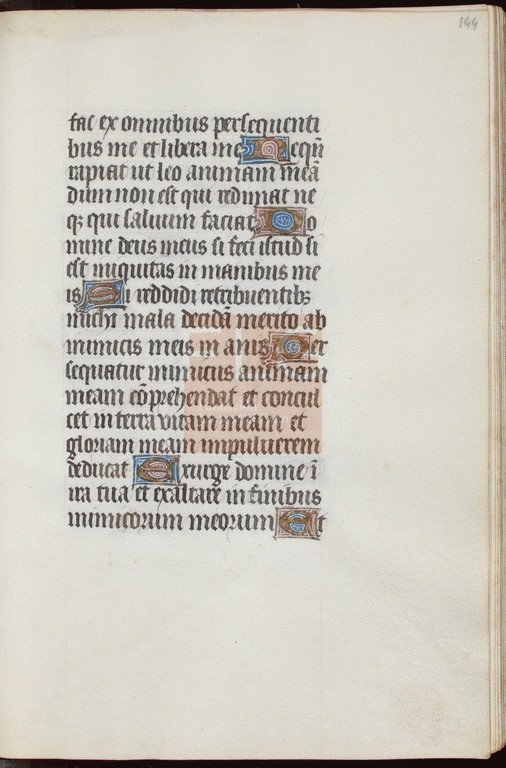 144
fac ex omnibus persequenti
bus me et libera me Ne qn̄
rapiat ut leo animam meā
dum non est qui redimat ne
qꝫ qui saluum faciat Do
mine deus meus si feci istud si
est iniquitas in manibus me
is Si reddidi retribuentibꝫ
michi mala decidā merito ab
inimicis meis inanis Per
sequatur inimicus animam
meam cōprehendat et concul
cet in terra vitam meam et
gloriam meam in puluerem
deducat Exurge domine ī
ira tua et exaltare in finibus
inimicorum meorum Et